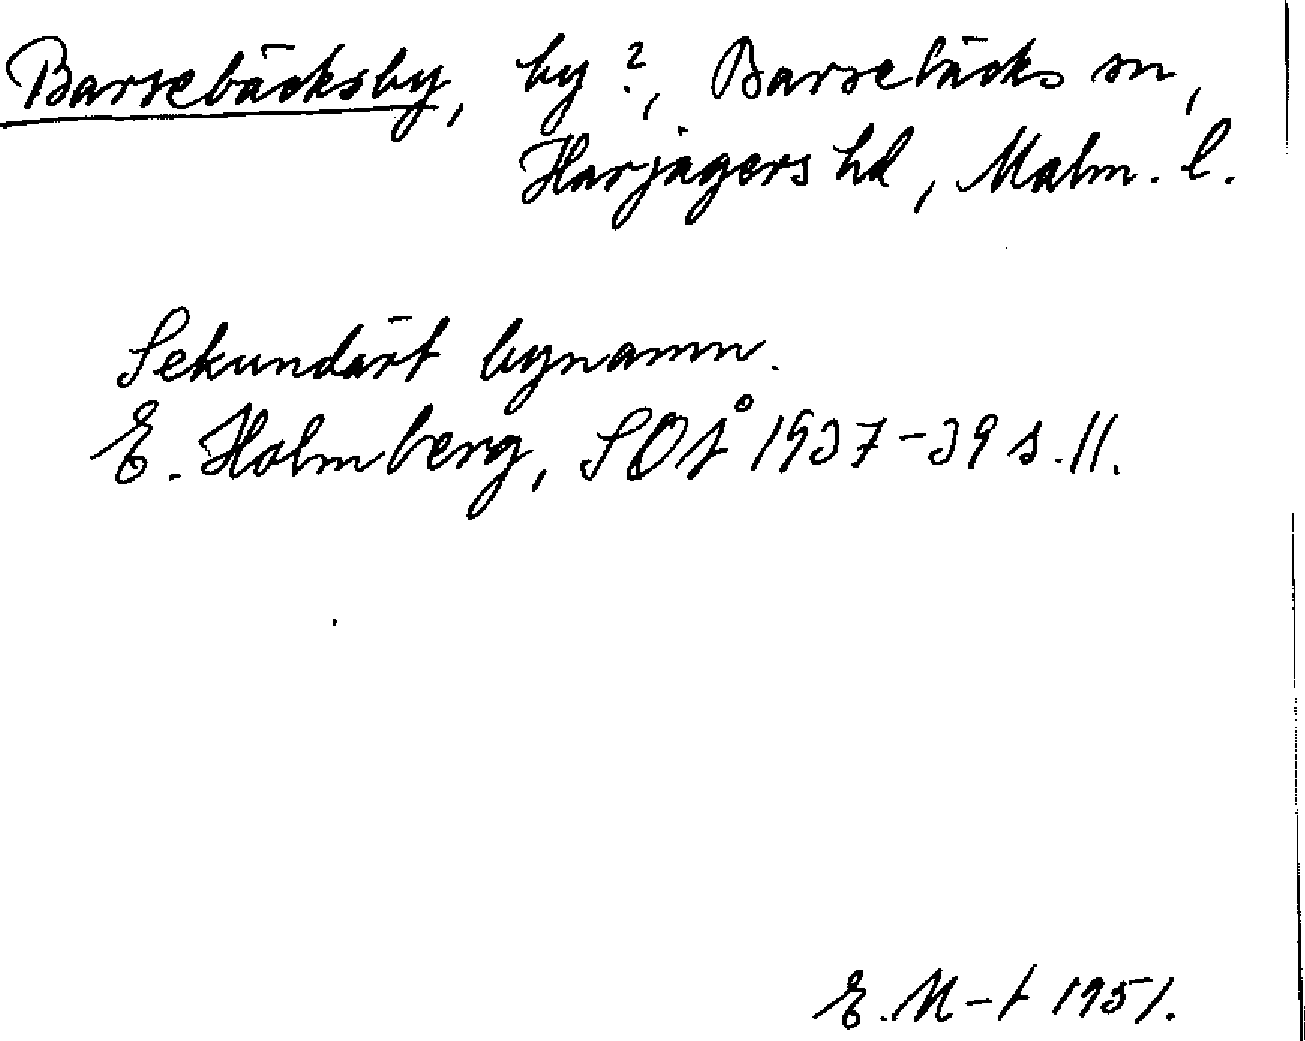 Barsebäcksby, by?, Barsebäcks sn,
Harjagers hd, Malm. l.
Sekundärt bynamn.
E. Holmberg, SOÅ 1937-39 s. 11.
E. M-t 1951.